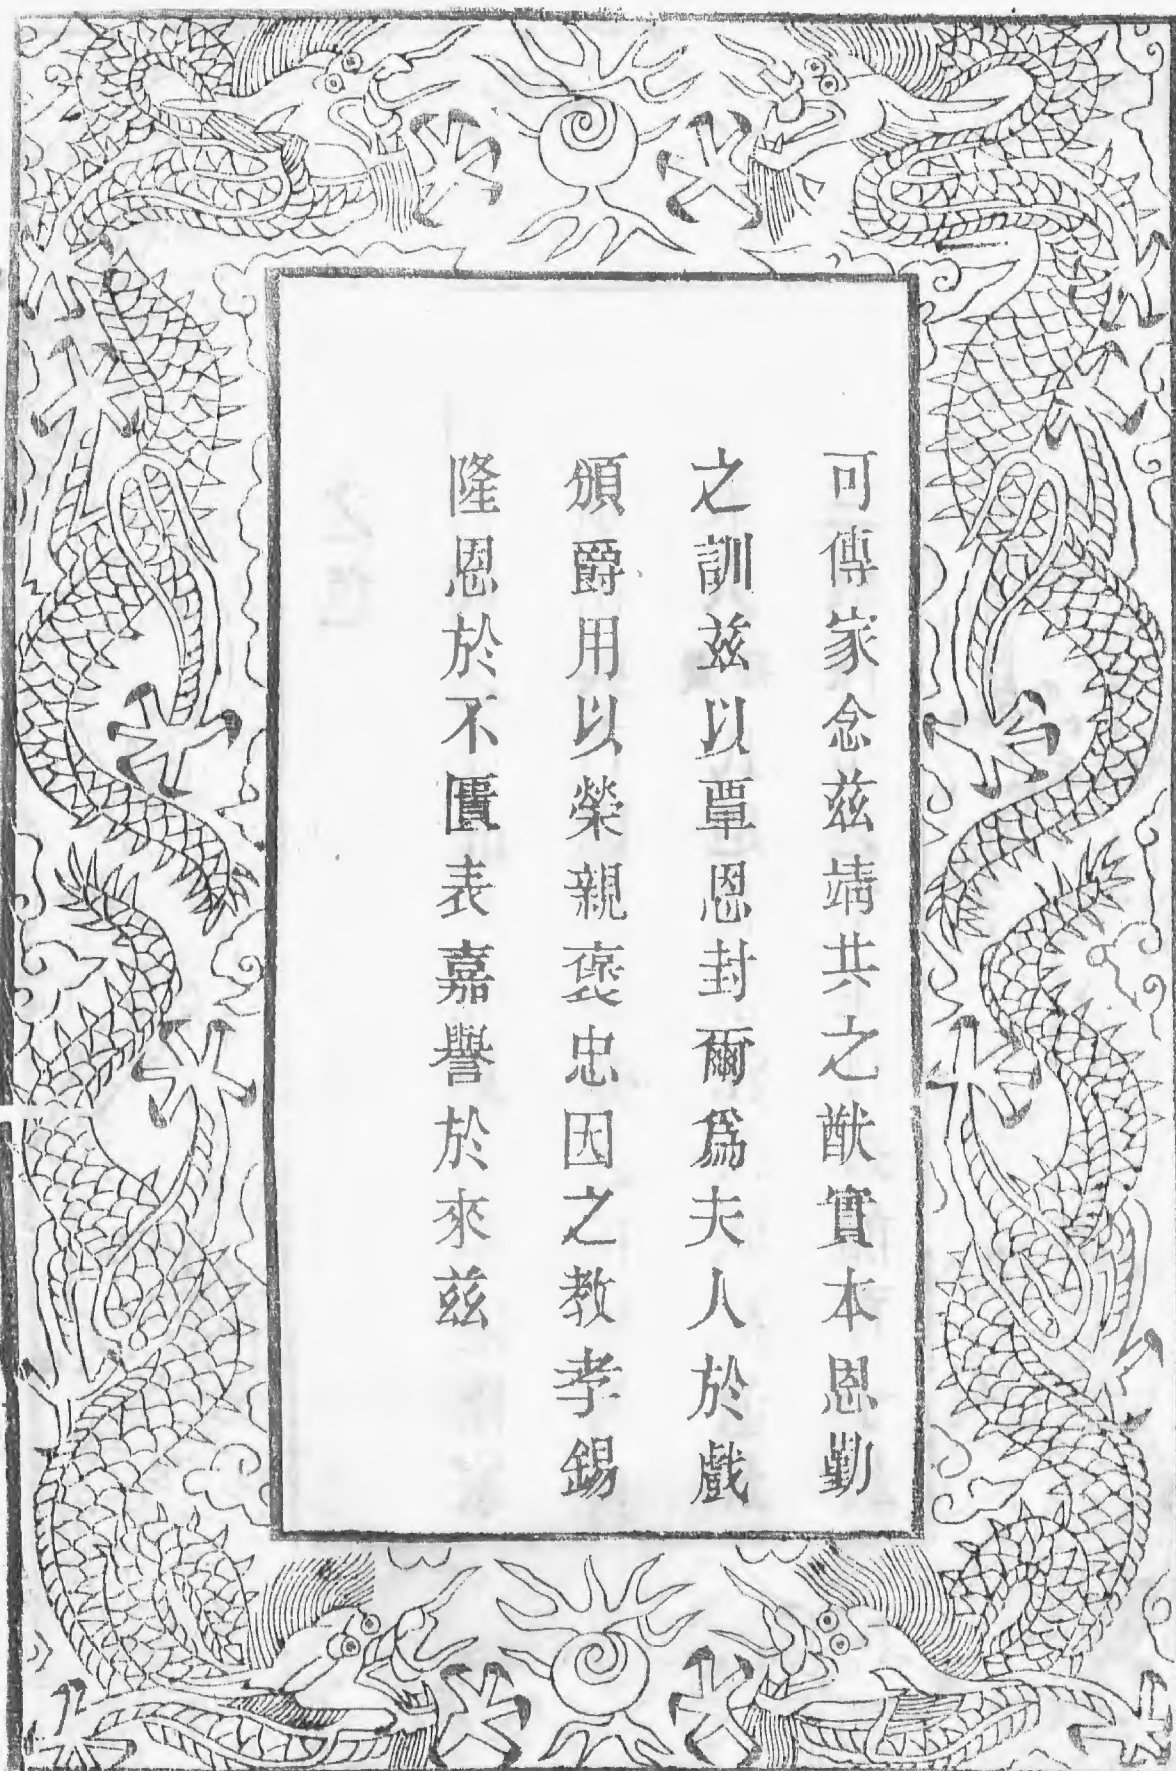 可傳家念茲靖共之猷實本恩勤
之訓茲以覃恩封爾爲夫人於戲
頒爵用以榮親褒忠因之教孝錫
隆恩於不匱表嘉譽於來茲